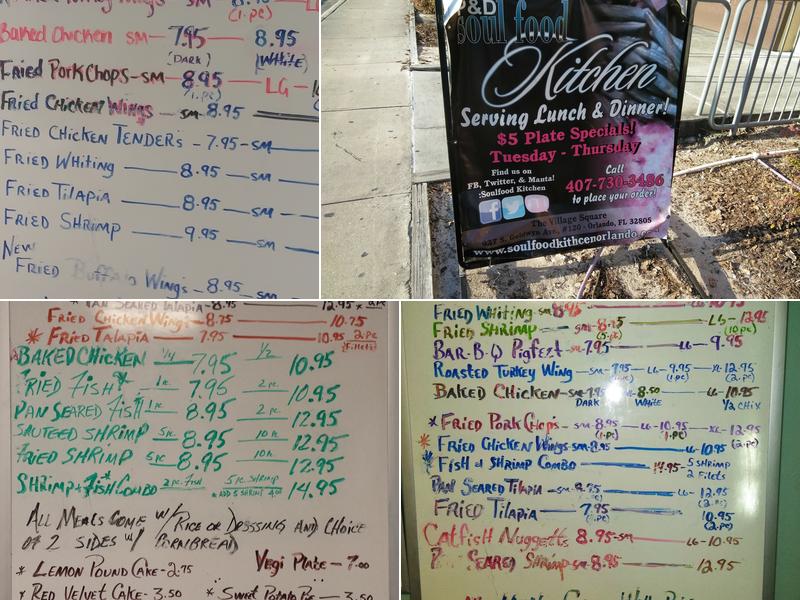 Baked Chicken SM 7.95 8.95
(DARK) (WHITE)
Fried Pork Chops - SM 8.95 LG
Fried Chicken Wings SM 8.95
Fried Chicken Tenders - 7.95 - SM
Fried Whiting 8.95 SM
Fried Tilapia 8.95 SM
Fried Shrimp 9.95 SM
New
Fried Buffalo Wings - 8.95 SM
P&D
soul food
Kitchen
Serving Lunch & Dinner!
$5 Plate Specials!
Tuesday - Thursday
Find us on
FB, Twitter, & Manta!
:Soulfood Kitchen
Call
407-730-3486
to place your order!
The Village Square
S. Goldwyn Ave, #120 - Orlando, FL 32805
www.soulfoodkithcenorlando.
* Pan Seared Talapia - 8.95 12.95
Fried Chicken Wings 8.75 10.75
* Fried Talapia 7.95 10.95 2 pc
(Filets)
Baked Chicken 1/4 7.95 1/2 10.95
Fried Fish 1 pc 7.95 2 pc 10.95
Pan Seared Fish 1 pc 8.95 2 pc 12.95
Sauteed Shrimp 5 pc 8.95 10 pc 12.95
Fried Shrimp 5 pc 8.95 10 pc 12.95
Shrimp + Fish Combo 2 pc Fish 5 pc Shrimp 14.95
* Add 5 Shrimp
All Meals Come w/ Rice or Dressing and Choice
of 2 sides w/ Cornbread
Vegi Plate - 7.00
* Lemon Pound Cake - 2.75
* Red Velvet Cake - 3.50 * Sweet Potato Pie - 3.50
Fried Whiting SM 8.95
Fried Shrimp SM - 8.75 LG - 12.95
(5 pc) (10 pc)
Bar-B-Q Pigfeet - SM 7.95 LG - 9.95
Roasted Turkey Wing - SM 7.95 LG - 9.95 XL - 12.95
(1 pc) (2 pc)
Baked Chicken - SM 7.95 - 8.50 LG - 10.95
Dark White 1/2 Chix
* Fried Pork Chops - SM 8.95 - LG - 10.95 - XL - 12.95
(1 pc) (1 pc) (2 pc)
* Fried Chicken Wings - SM 8.95 LG - 10.95
* Fish & Shrimp Combo 14.95 - 5 Shrimp
2 Filets
Pan Seared Tilapia - SM 8.95 LG - 12.95
(2 pc)
Fried Tilapia 7.95 10.95
(1 pc) (2 pc)
Catfish Nuggetts 8.95 - SM LG - 10.95
Seared Shrimp - SM - 8.95 12.95